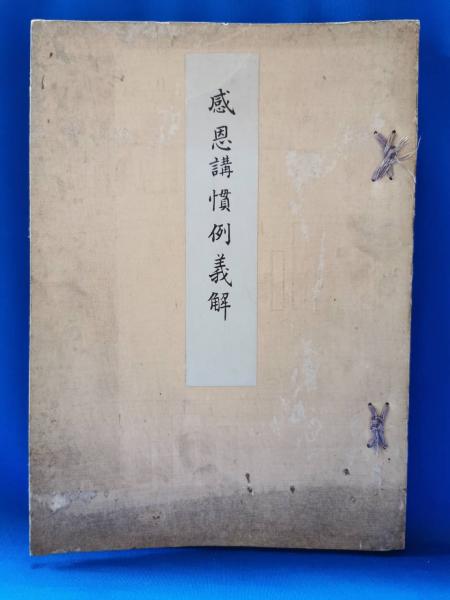 感恩講慣例義解